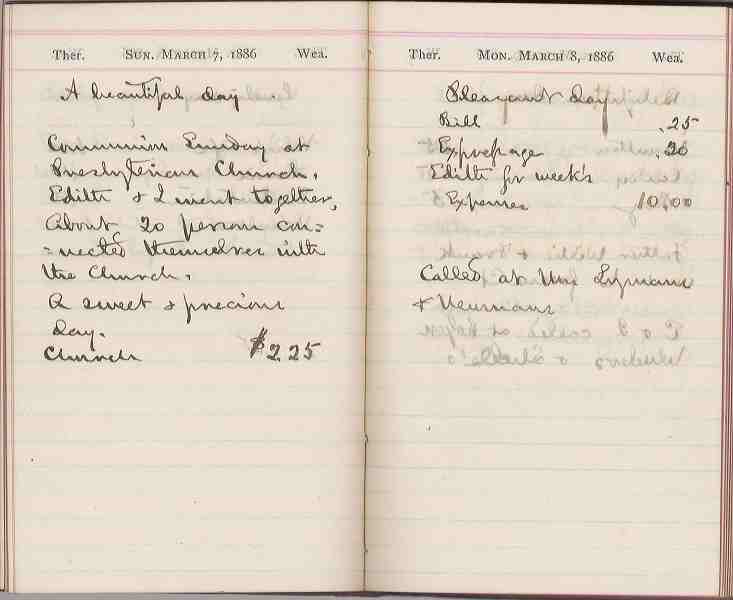 Ther. Sun. March 7, 1886 Wea.
A beautiful day.
Communion Sunday at
Presbyterian Church.
Edith & I went together,
About 20 person con=
=nected themselves with
the Church.
A sweet & precious
day.
Church $2.25
Ther. Mon. March 8, 1886 Wea.
Pleasant Day
Bill .25
Expressage .20
Edith for week's
Expenses 10.00
Called at Lymans
& Yeumans